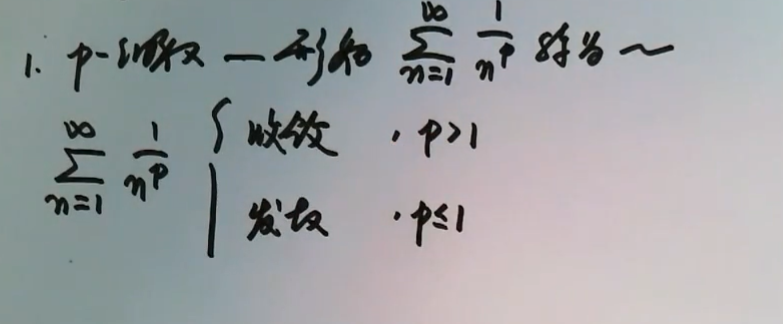 1. p-级数 — 形如 ∑_{n=1}^{∞} 1/n^p 称为 ~
∑_{n=1}^{∞} 1/n^p { 收敛 , p>1
发散 , p≤1